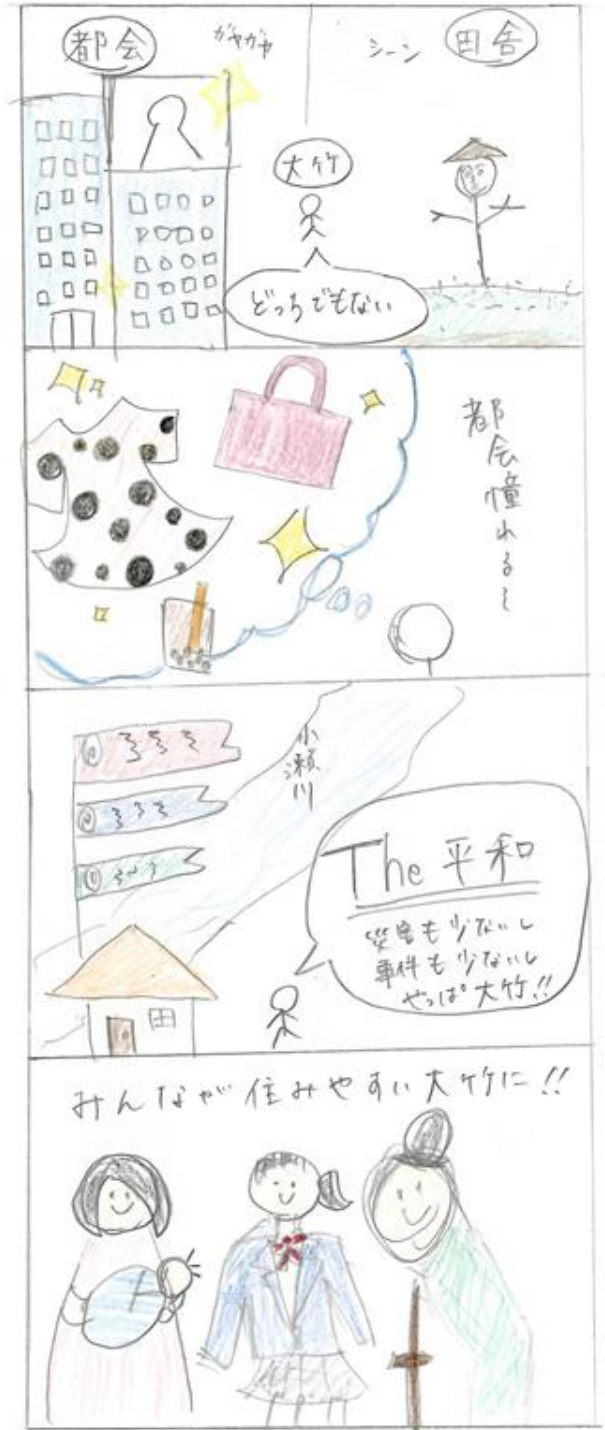 都会
ガヤガヤ
シーン
田舎
大竹
どっちでもない
都会憧れる〜
小瀬川
The 平和
災害も少ないし
事件も少ないし
やっぱ大竹!!
みんなが住みやすい大竹に!!